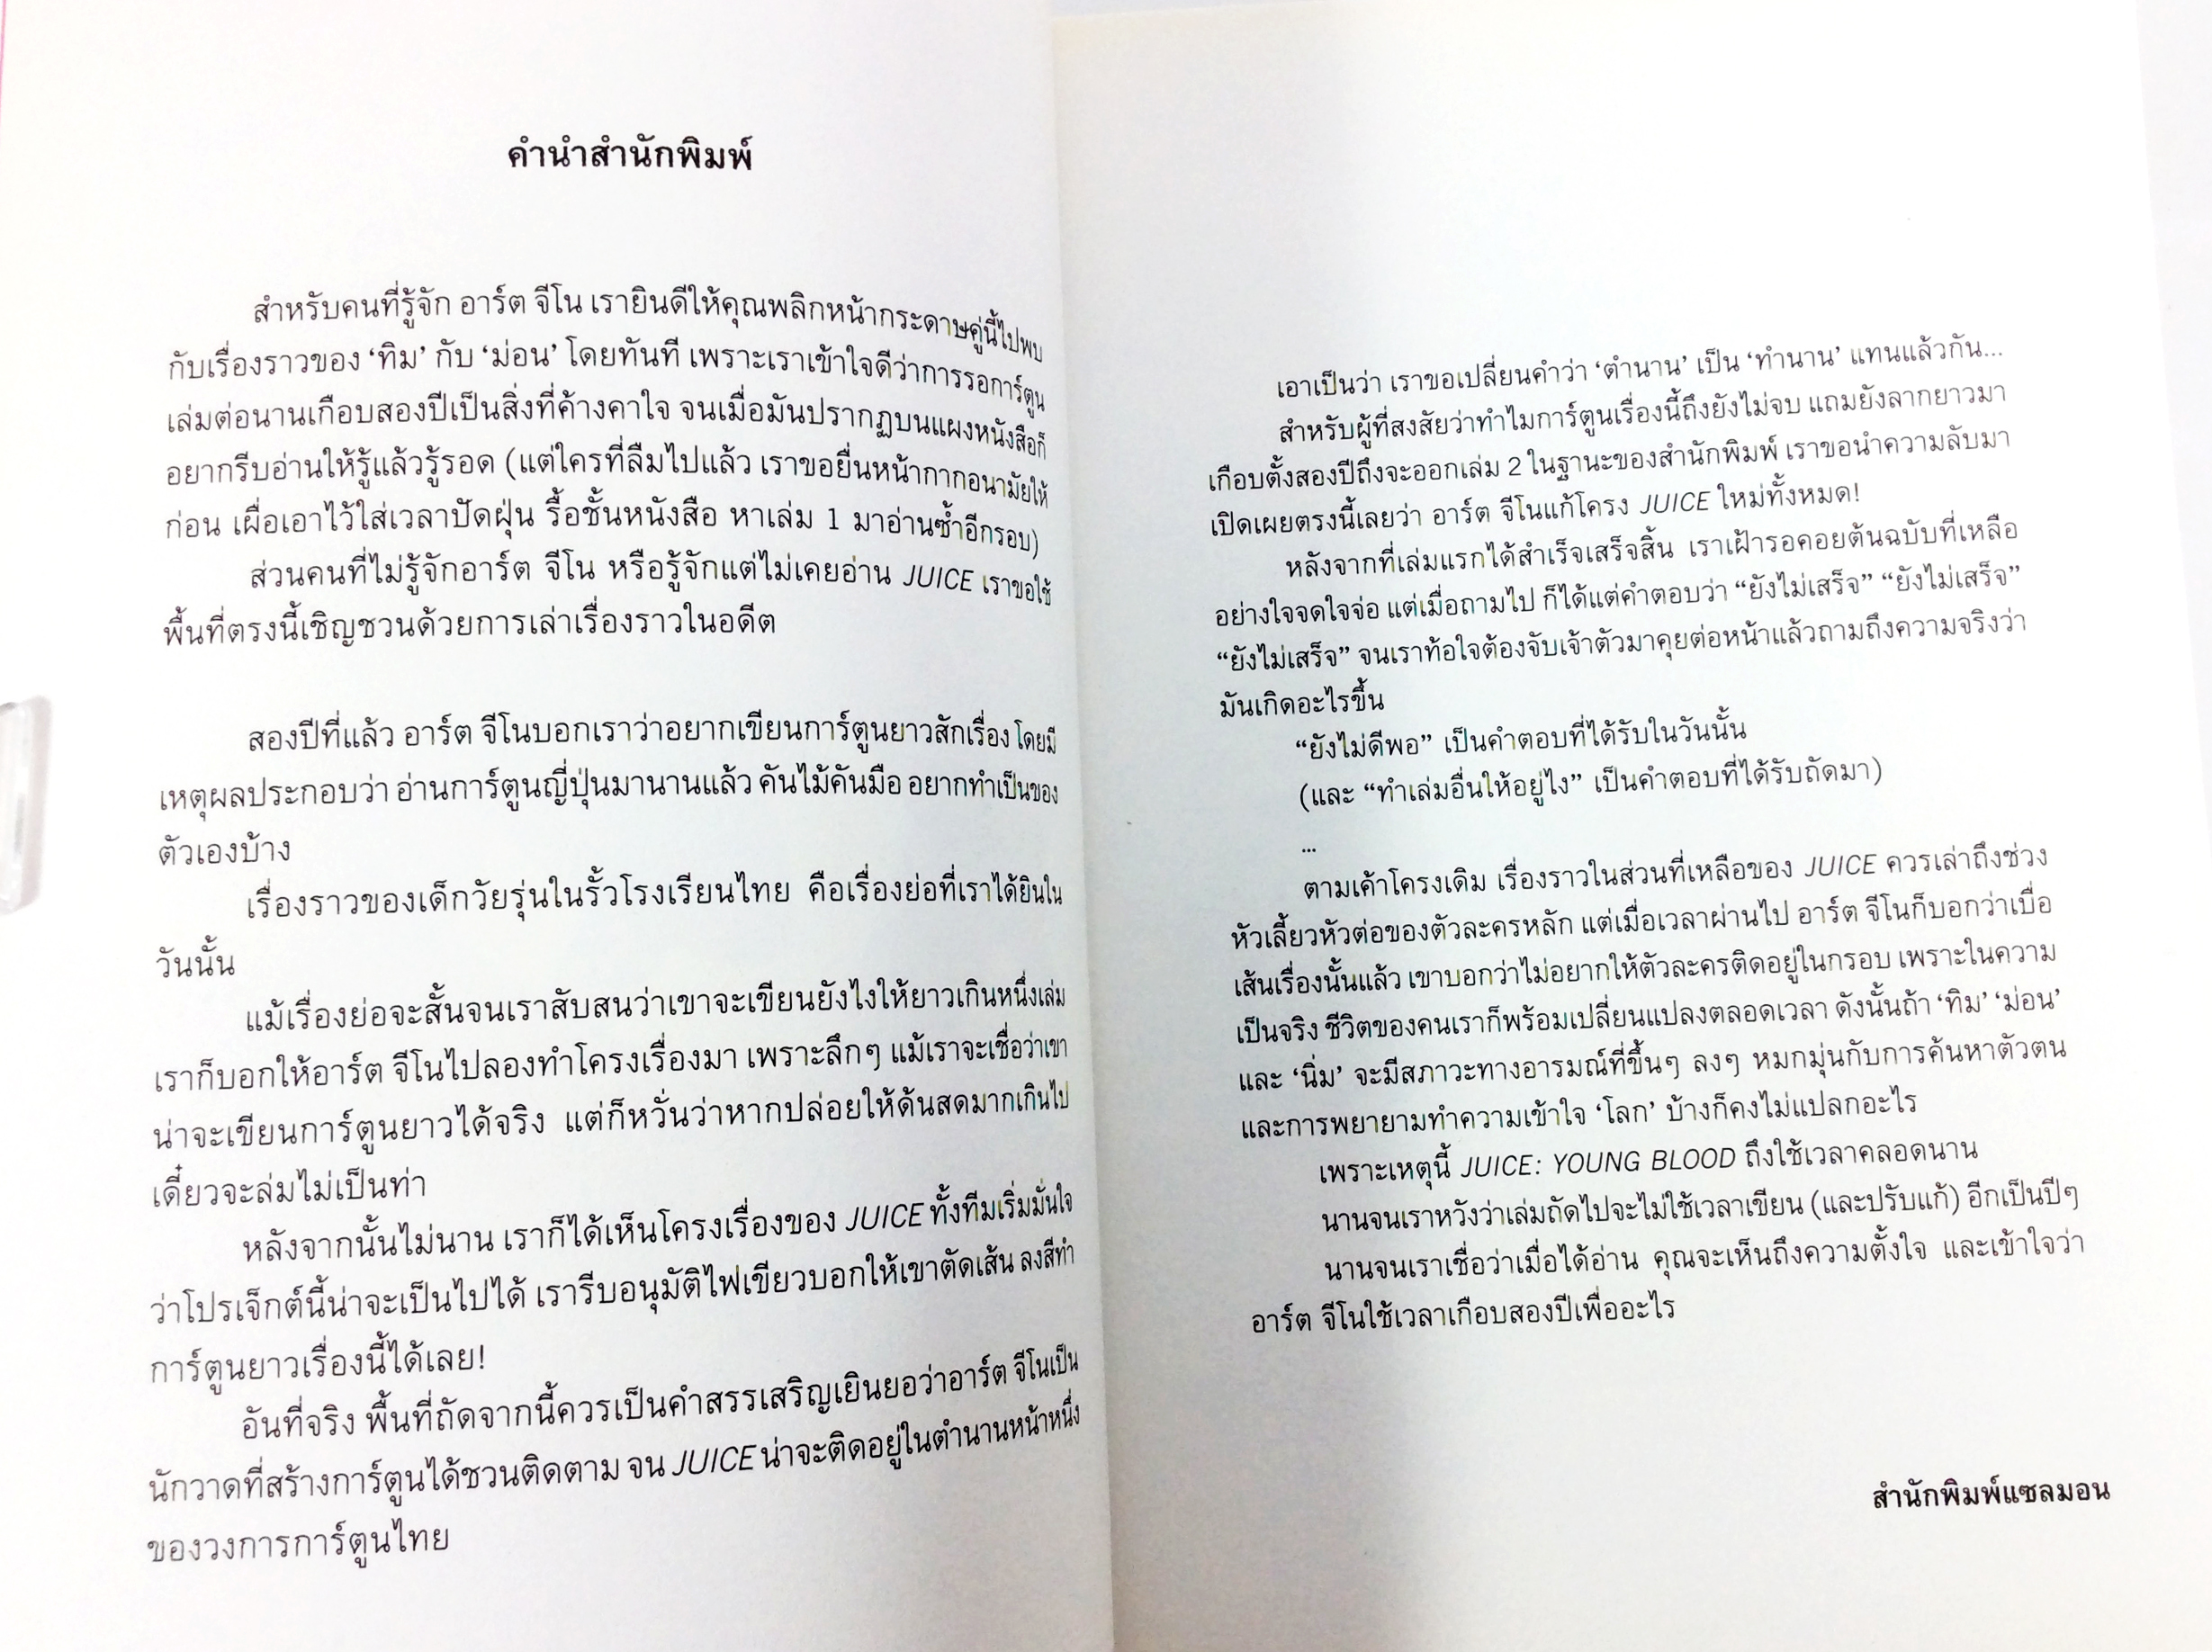 คำนำสำนักพิมพ์
สำหรับคนที่รู้จัก อาร์ต จีโน เรายินดีให้คุณพลิกหน้ากระดาษคู่นี้ไปพบ
กับเรื่องราวของ ‘ทิม’ กับ ‘ม่อน’ โดยทันที เพราะเราเข้าใจดีว่าการรอการ์ตูน
เล่มต่อนานเกือบสองปีเป็นสิ่งที่ค้างคาใจ จนเมื่อมันปรากฏบนแผงหนังสือก็
อยากรีบอ่านให้รู้แล้วรู้รอด (แต่ใครที่ลืมไปแล้ว เราขอยื่นหน้ากากอนามัยให้
ก่อน เผื่อเอาไว้ใส่เวลาปัดฝุ่น รื้อชั้นหนังสือ หาเล่ม 1 มาอ่านซ้ำอีกรอบ)
ส่วนคนที่ไม่รู้จักอาร์ต จีโน หรือรู้จักแต่ไม่เคยอ่าน JUICE เราขอใช้
พื้นที่ตรงนี้เชิญชวนด้วยการเล่าเรื่องราวในอดีต
สองปีที่แล้ว อาร์ต จีโนบอกเราว่าอยากเขียนการ์ตูนยาวสักเรื่อง โดยมี
เหตุผลประกอบว่า อ่านการ์ตูนญี่ปุ่นมานานแล้ว คันไม้คันมือ อยากทำเป็นของ
ตัวเองบ้าง
เรื่องราวของเด็กวัยรุ่นในรั้วโรงเรียนไทย คือเรื่องย่อที่เราได้ยินใน
วันนั้น
แม้เรื่องย่อจะสั้นจนเราสับสนว่าเขาจะเขียนยังไงให้ยาวเกินหนึ่งเล่ม
เราก็บอกให้อาร์ต จีโนไปลองทำโครงเรื่องมา เพราะลึกๆ แม้เราจะเชื่อว่าเขา
น่าจะเขียนการ์ตูนยาวได้จริง แต่ก็หวั่นว่าหากปล่อยให้ด้นสดมากเกินไป
เดี๋ยวจะล่มไม่เป็นท่า
หลังจากนั้นไม่นาน เราก็ได้เห็นโครงเรื่องของ JUICE ทั้งทีมเริ่มมั่นใจ
ว่าโปรเจ็กต์นี้น่าจะเป็นไปได้ เรารีบอนุมัติไฟเขียวบอกให้เขาตัดเส้น ลงสีทำ
การ์ตูนยาวเรื่องนี้ได้เลย!
อันที่จริง พื้นที่ถัดจากนี้ควรเป็นคำสรรเสริญเยินยอว่าอาร์ต จีโนเป็น
นักวาดที่สร้างการ์ตูนได้ชวนติดตาม จน JUICE น่าจะติดอยู่ในตำนานหน้าหนึ่ง
ของวงการการ์ตูนไทย
เอาเป็นว่า เราขอเปลี่ยนคำว่า ‘ตำนาน’ เป็น ‘ทำนาน’ แทนแล้วกัน...
สำหรับผู้ที่สงสัยว่าทำไมการ์ตูนเรื่องนี้ถึงยังไม่จบ แถมยังลากยาวมา
เกือบตั้งสองปีถึงจะออกเล่ม 2 ในฐานะของสำนักพิมพ์ เราขอนำความลับมา
เปิดเผยตรงนี้เลยว่า อาร์ต จีโนแก้โครง JUICE ใหม่ทั้งหมด!
หลังจากที่เล่มแรกได้สำเร็จเสร็จสิ้น เราเฝ้ารอคอยต้นฉบับที่เหลือ
อย่างใจจดใจจ่อ แต่เมื่อถามไป ก็ได้แต่คำตอบว่า “ยังไม่เสร็จ” “ยังไม่เสร็จ”
“ยังไม่เสร็จ” จนเราท้อใจต้องจับเจ้าตัวมาคุยต่อหน้าแล้วถามถึงความจริงว่า
มันเกิดอะไรขึ้น
“ยังไม่ดีพอ” เป็นคำตอบที่ได้รับในวันนั้น
(และ “ทำเล่มอื่นให้อยู่ไง” เป็นคำตอบที่ได้รับถัดมา)
...
ตามเค้าโครงเดิม เรื่องราวในส่วนที่เหลือของ JUICE ควรเล่าถึงช่วง
หัวเลี้ยวหัวต่อของตัวละครหลัก แต่เมื่อเวลาผ่านไป อาร์ต จีโนก็บอกว่าเบื่อ
เส้นเรื่องนั้นแล้ว เขาบอกว่าไม่อยากให้ตัวละครติดอยู่ในกรอบ เพราะในความ
เป็นจริง ชีวิตของคนเราก็พร้อมเปลี่ยนแปลงตลอดเวลา ดังนั้นถ้า ‘ทิม’ ‘ม่อน’
และ ‘นิ่ม’ จะมีสภาวะทางอารมณ์ที่ขึ้นๆ ลงๆ หมกมุ่นกับการค้นหาตัวตน
และการพยายามทำความเข้าใจ ‘โลก’ บ้างก็คงไม่แปลกอะไร
เพราะเหตุนี้ JUICE: YOUNG BLOOD ถึงใช้เวลาคลอดนาน
นานจนเราหวังว่าเล่มถัดไปจะไม่ใช้เวลาเขียน (และปรับแก้) อีกเป็นปีๆ
นานจนเราเชื่อว่าเมื่อได้อ่าน คุณจะเห็นถึงความตั้งใจ และเข้าใจว่า
อาร์ต จีโนใช้เวลาเกือบสองปีเพื่ออะไร
สำนักพิมพ์แซลมอน